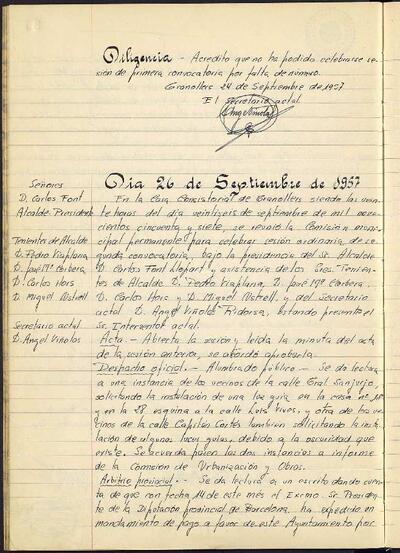 Diligencia - Acredito que no ha podido celebrarse se-
sión de primera convocatoria por falta de número.
Granollers 24 de Septiembre de 1957
El secretario actal.
Señores
D. Carlos Font
Alcalde-Presidente
Tenientes de Alcalde
D. Pedro Viaplana
D. José Mª Corbera
D. Carlos Hois
D. Miguel
Secretario actal.
D. Angel Viñolas
Dia 26 de Septiembre de 1957
En la Casa Consistorial de Granollers siendo las vein-
te horas del dia veintiseis de septiembre de mil nove-
cientos cincuenta y siete, se reunió la Comisión muni-
cipal permanente para celebrar sesión ordinaria de se-
gunda convocatoria, bajo la presidencia del Sr. Alcalde
D. Carlos Font Llopart y asistencia de los Sres. Tenien-
tes de Alcalde D. Pedro Viaplana, D. José Mª Corbera,
D. Carlos Hois y D. Miguel y del Secretario
actal. D. Angel Viñolas estando presente el
Sr. Interventor actal.
Acta - Abierta la sesión y leída la minuta del acta
de la sesión anterior, se acordó aprobarla.
Despacho oficial. - Alumbrado público - Se da lectura
a una instancia de los vecinos de la calle Gral Sanjurjo,
solicitando la instalación de una luz guía en la casa nº 18
y en la 28 esquina a la calle Luis Vives, y otra de los ve-
cinos de la calle Capitán Cortés tambien solicitando la insta-
lación de algunas luces guías, debido a la oscuridad que
existe. Se acuerda pasen las dos instancias a informe
de la Comisión de Urbanización y Obras.
Arbitrio provincial. - Se da lectura a un escrito dando cuen-
ta de que con fecha 14 de este mes el Excmo. Sr. Presiden-
te de la Diputación provincial de Barcelona, ha expedido en
mandamiento de pago a favor de este Ayuntamiento por